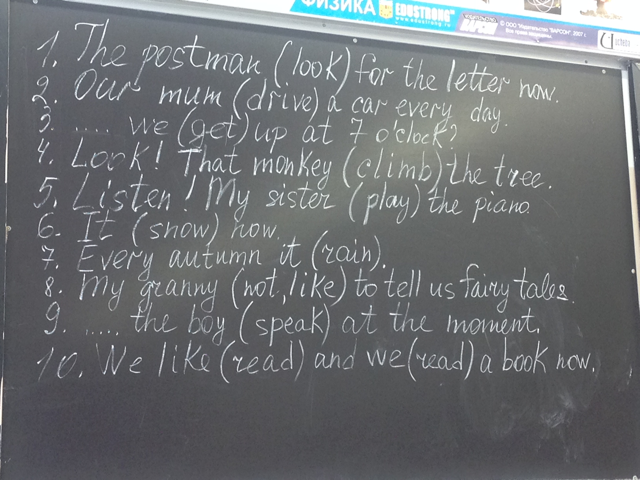 ФИЗИКА EDUSTRONG
www.edustrong.ru
ВАРСОН
© ООО "Издательство "ВАРСОН", 2007 г.
Все права защищены.
1. The postman (look) for the letter now.
2. Our mum (drive) a car every day.
3. .... we (get) up at 7 o'clock?
4. Look! That monkey (climb) the tree.
5. Listen! My sister (play) the piano
6. It (snow) now.
7. Every autumn it (rain).
8. My granny (not, like) to tell us fairy tales.
9. ..... the boy (speak) at the moment.
10. We like (read) and we (read) a book now.